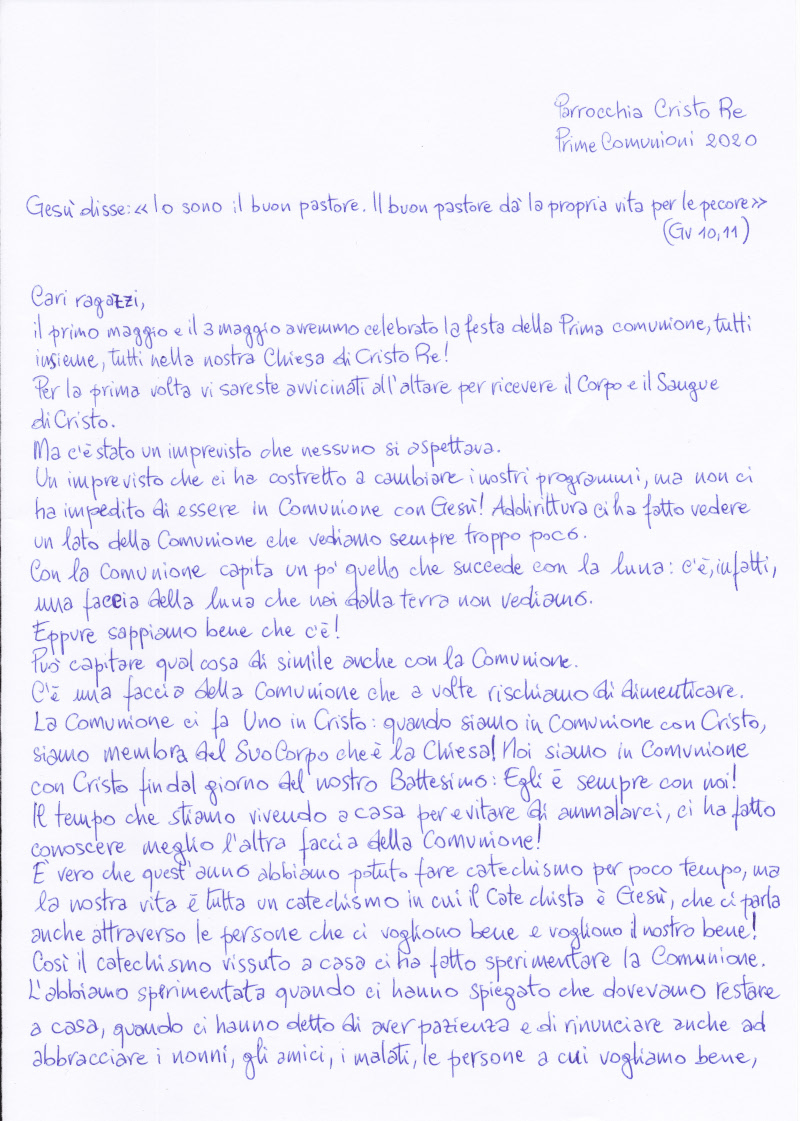 Parrocchia Cristo Re
Prime Comunioni 2020
Gesù disse: «Io sono il buon pastore. Il buon pastore dà la propria vita per le pecore»
(Gv 10,11)
Cari ragazzi,
il primo maggio e il 3 maggio avremmo celebrato la festa della Prima comunione, tutti
insieme, tutti nella nostra Chiesa di Cristo Re!
Per la prima volta vi sareste avvicinati all'altare per ricevere il Corpo e il Sangue
di Cristo.
Ma c'è stato un imprevisto che nessuno si aspettava.
Un imprevisto che ci ha costretto a cambiare i nostri programmi, ma non ci
ha impedito di essere in Comunione con Gesù! Addirittura ci ha fatto vedere
un lato della Comunione che vediamo sempre troppo poco.
Con la Comunione capita un po' quello che succede con la luna: c'è, infatti,
una faccia della luna che noi dalla terra non vediamo.
Eppure sappiamo bene che c'è!
Può capitare qualcosa di simile anche con la Comunione.
C'è una faccia della Comunione che a volte rischiamo di dimenticare.
La Comunione ci fa Uno in Cristo: quando siamo in Comunione con Cristo,
siamo membra del Suo Corpo che è la Chiesa! Noi siamo in Comunione
con Cristo fin dal giorno del nostro Battesimo: Egli è sempre con noi!
Il tempo che stiamo vivendo a casa per evitare di ammalarci, ci ha fatto
conoscere meglio l'altra faccia della Comunione!
È vero che quest'anno abbiamo potuto fare catechismo per poco tempo, ma
la nostra vita è tutta un catechismo in cui il Catechista è Gesù, che ci parla
anche attraverso le persone che ci vogliono bene e vogliono il nostro bene!
Così il catechismo vissuto a casa ci ha fatto sperimentare la Comunione.
L'abbiamo sperimentata quando ci hanno spiegato che dovevamo restare
a casa, quando ci hanno detto di aver pazienza e di rinunciare anche ad
abbracciare i nonni, gli amici, i malati, le persone a cui vogliamo bene,